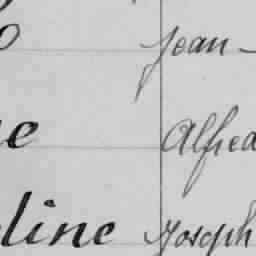 Jean -
Alfred
line Joseph